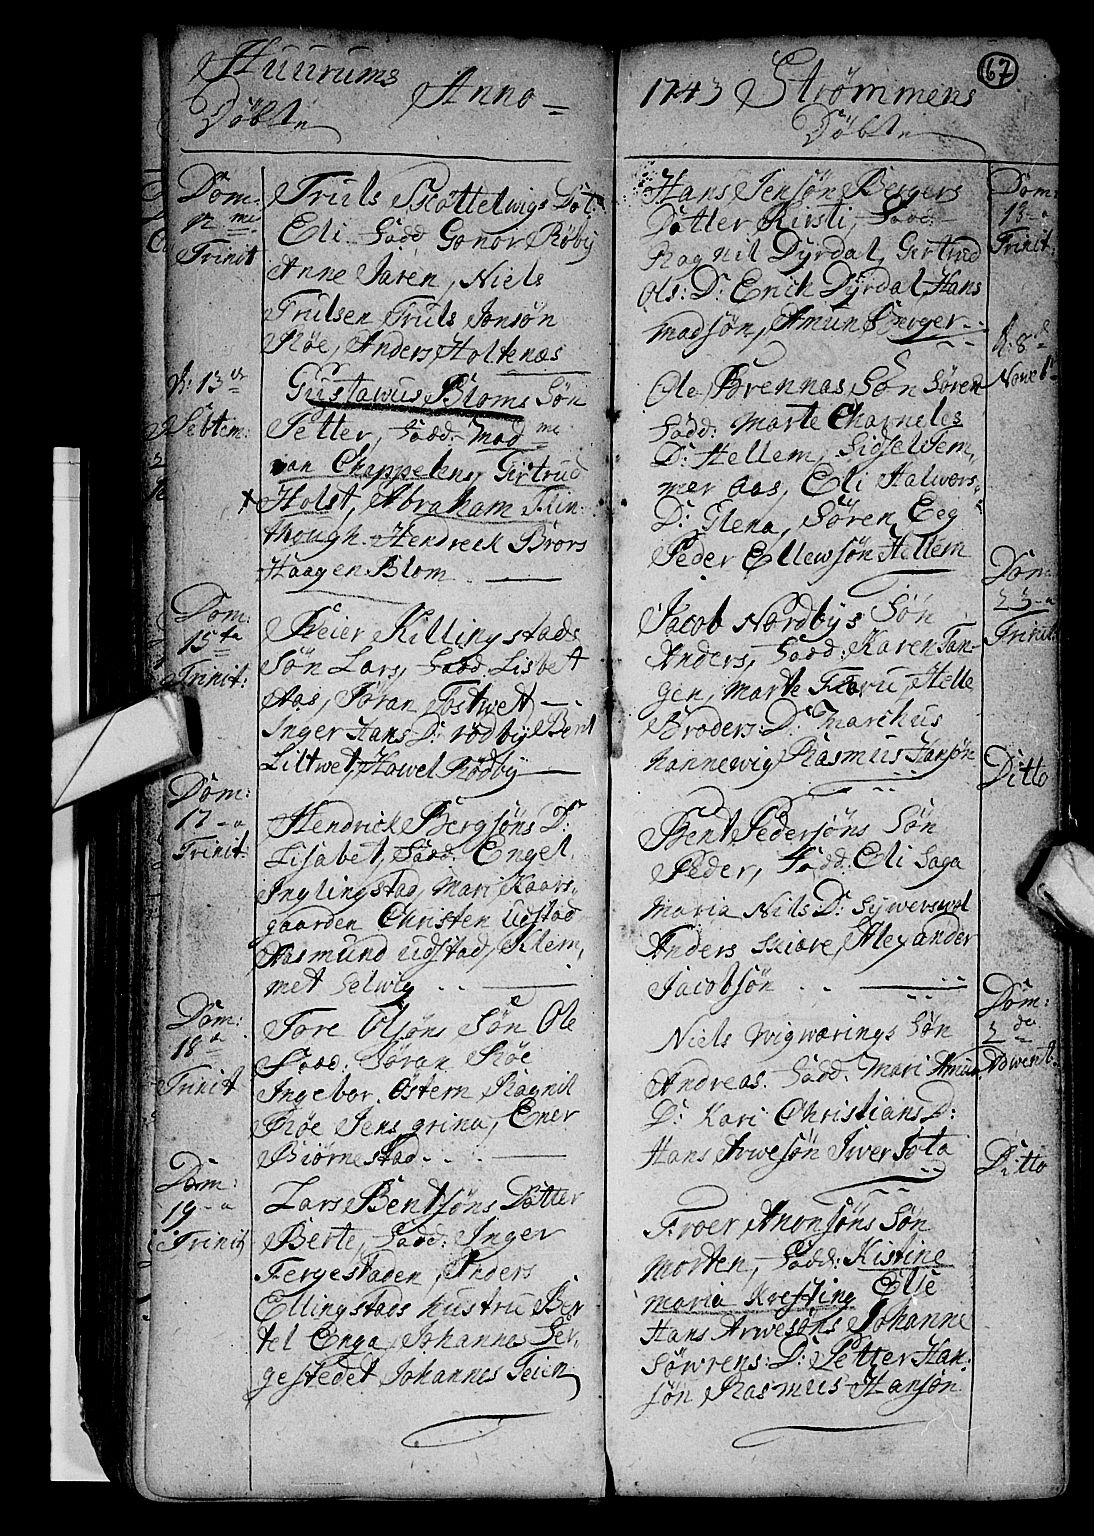 Huurums Anno
Döbte
Dom:
12 me
Trinit
Truls Skottelwigs Dot:
Eli Fadd Gonor Röby
Anne Jaren, Niels
Trulsen Truls Jonsön
Röe, Anders Holtenæs
D: 13 de
Sebtem:
Gustawus Bloms Sön
Petter, Fadd. Mad me
van Cheppelens, Girtrud
Holst, Abraham Flin-
though Hendreck Brors
Haagen Blom
Dom:
15 ta
Trinit:
Reier Killingstads
Sön Lars, Fadd. Lisbet
Aas, Jöran Tostwet
Inger Hans D: rödby Bent
Liltwet, Hawel Rödby
Dom:
17-a
Trinit.
Hendrick Bergsöns D:
Lisabet, Fadd. Engel
Inglingstad, Mari Kaars-
gaarden Christen Udstad
Aasmund Udstad, Klem,
met Selwig
Dom:
18 a
Trinit
Tore Olsöns Sön Ole
Fadd. Jöran Röe
Ingebor. Östern Ragnil
Röe Jens grina, Ener
Biörnestad
Dom:
19-a
Trinit
Lars Bentsöns Datter
Berte, Fadd: Inger
Fergestaden, Anders
Ellingstads Hustru Ber
tel Enga, Johannes Ser-
gestedet Johannes Teien
67
1743 Strömmens
Döbte
Hans Jensön Bergers
Datter Kirsti, Fadd.
Ragnil Dyrdal, Girtrud
Ols: D: Erich Dyrdal, Hans
Madsön, Amun Berger
Dom:
13-a
Trinit:
Ole Brennas Sön Sören
Fadd. Marte Charneles
D: Hellem, Sidsel Jem,
mer Aas, Eli Halvors
D: Glena, Sören Eeg
Peder Ellewsön Hellem
D: 8 d
Novebr
Jacob Nordbys Sön
Anders, Fadd: Karen Tan-
gen, Marte Færu, Helle
Broders D: Marchus
Hannewig Rasmus Hansön
Dom
23-a
Trinit:
Bent Pedersöns Sön
Peder, Fadd. Eli Saga
Maria Nils D: Sywerswol
Anders Skiære, Alexander
Jacobsön
Ditto
Niels wigwærings Sön
Andreas. Fadd. Mari Amun
D: Kari Christians D:
Hans Arwesön Iwer Tota
Dom:
2 da
Adwent.
Froer Anonsöns Sön
Morten, Fadd: Kistine
Maria Krefting Else
Hans Arwesöns Johanne
Söwrens: D: Petter Han-
sön Rasmus Hansön
Ditto